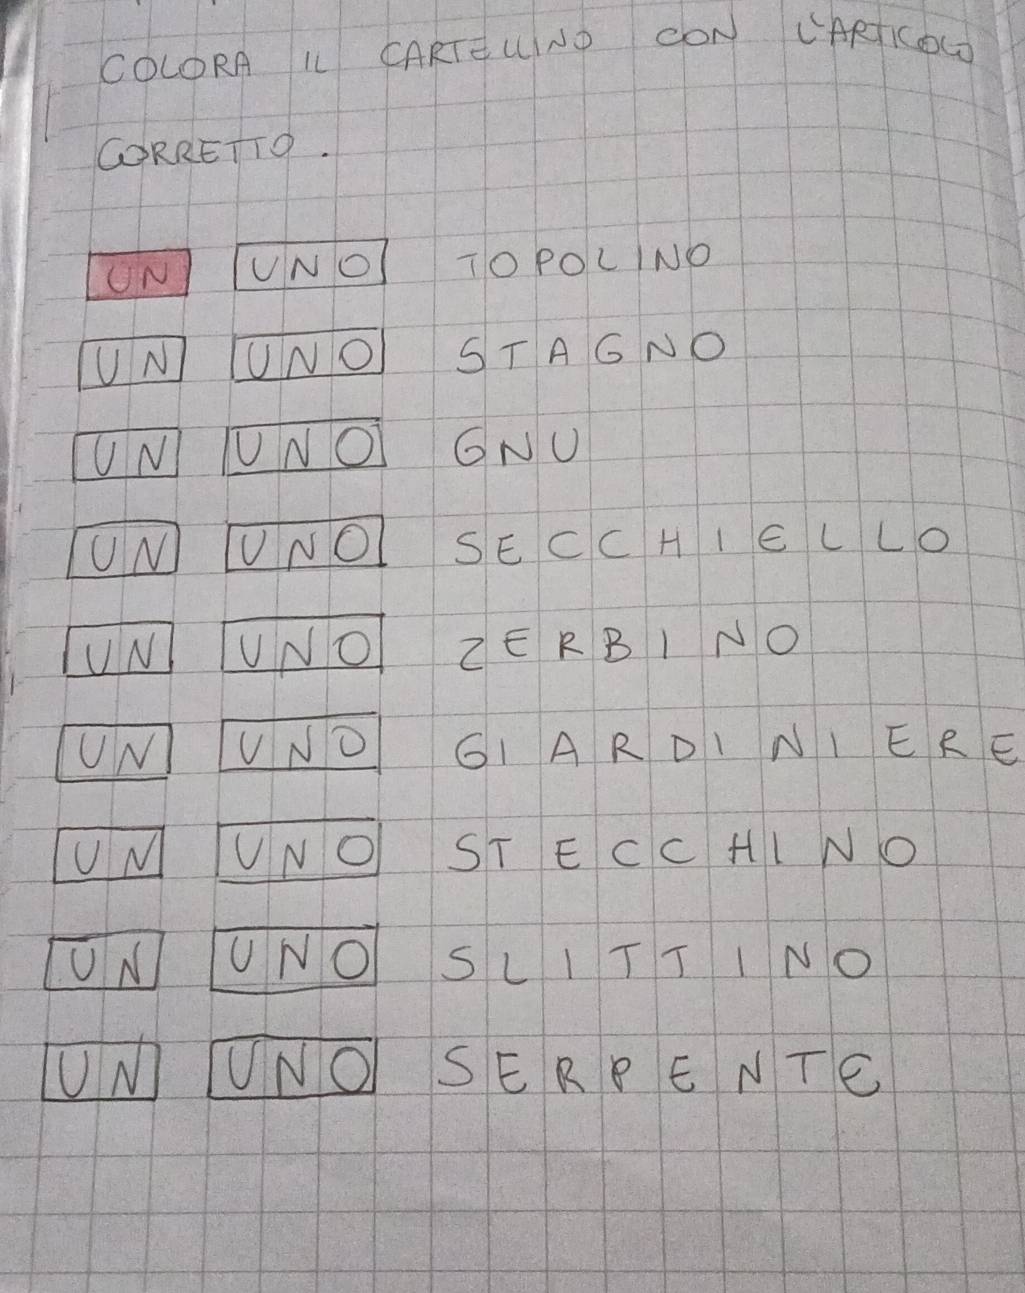 COLORA IL CARTELLINO CON L'ARTICOLO
CORRETTO.
UN UNO TOPOLINO
UN UNO STAGNO
UN UNO GNU
UN UNO SECCHIELLO
UN UNO ZERBINO
UN UNO GIARDINIERE
UN UNO STECCHINO
UN UNO SLITTINO
UN UNO SERPENTE